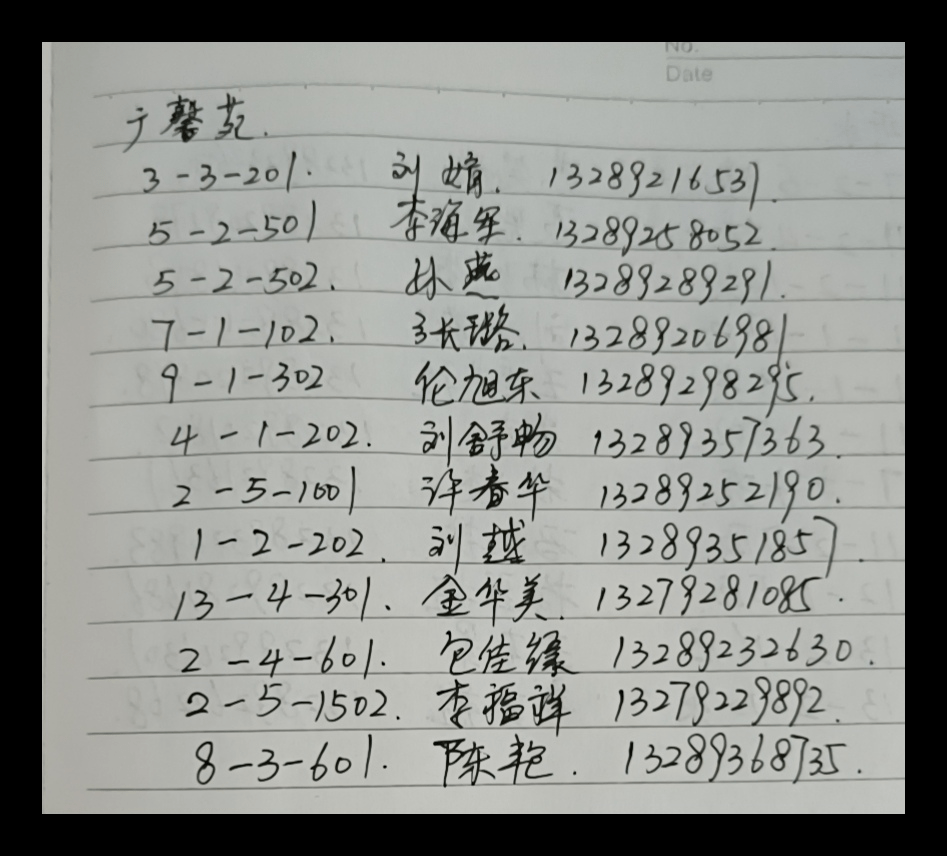 No.
Date
广馨苑.
3-3-201. 刘婧. 13289216537.
5-2-501 李海军. 13289258052.
5-2-502. 孙燕 13289289291.
7-1-102. 张璐. 13289206981
9-1-302 伦旭东 13289298295.
4-1-202. 刘舒畅 13289357363.
2-5-1001 许春华 13289252190.
1-2-202. 刘越 13289351857.
13-4-301. 金华美 13279281085.
2-4-601. 包佳缘 13289232630.
2-5-1502. 李福祥 13279229892.
8-3-601. 陈艳. 13289368735.